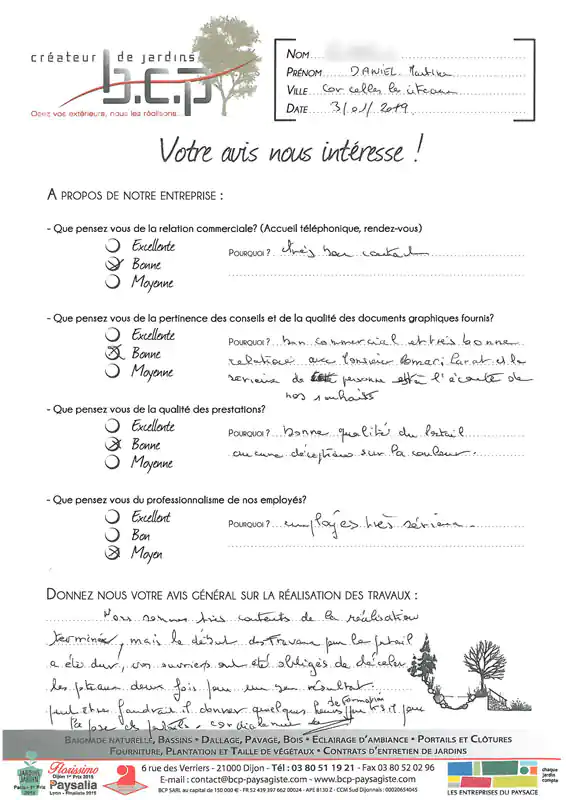 créateur de jardins
b.c.p
Osez vos extérieurs, nous les réalisons...
NOM
PRÉNOM DANIEL Martine
VILLE Corcelles les citeaux
DATE 3/01/2019
Votre avis nous intéresse !
A PROPOS DE NOTRE ENTREPRISE :
- Que pensez vous de la relation commerciale? (Accueil téléphonique, rendez-vous)
Excellente
Bonne
Moyenne
POURQUOI ? très bon contact
- Que pensez vous de la pertinence des conseils et de la qualité des documents graphiques fournis?
Excellente
Bonne
Moyenne
POURQUOI ? bon commercial et très bonne
relation avec Monsieur et le
sérieux de personne est à l'écoute de
nos souhaits
- Que pensez vous de la qualité des prestations?
Excellente
Bonne
Moyenne
POURQUOI ? bonne qualité du portail
aucune déception sur la couleur.
- Que pensez vous du professionnalisme de nos employés?
Excellent
Bon
Moyen
POURQUOI ? employés très sérieux
DONNEZ NOUS VOTRE AVIS GÉNÉRAL SUR LA RÉALISATION DES TRAVAUX :
Nous sommes très contents de la réalisation
terminée, mais le début des travaux pour le portail
a été dur, vos ouvriers ont été obligés de
les poteaux deux fois pour un bon résultat.
peut être faudrait il donner quelques heures de formation pour
la pose de portails. cordialement
BAIGNADE NATURELLE, BASSINS • DALLAGE, PAVAGE, BOIS • ECLAIRAGE D'AMBIANCE • PORTAILS ET CLÔTURES
FOURNITURE, PLANTATION ET TAILLE DE VÉGÉTAUX • CONTRATS D'ENTRETIEN DE JARDINS
JARDINS JARDIN
Paris - 1er Prix
2014
Florissimo
Dijon 1er Prix 2015
Paysalia
Lyon - Finaliste 2015
6 rue des Verriers - 21000 Dijon - Tél : 03 80 51 19 21 - Fax 03 80 52 02 96
E-mail : contact@bcp-paysagiste.com - www.bcp-paysagiste.com
BCP SARL au capital de 150 000 € - FR 52 439 397 662 00024 - APE 8130 Z - CCM Sud Dijonnais : 00020654045
LES ENTREPRISES DU PAYSAGE
chaque
jardin
compte